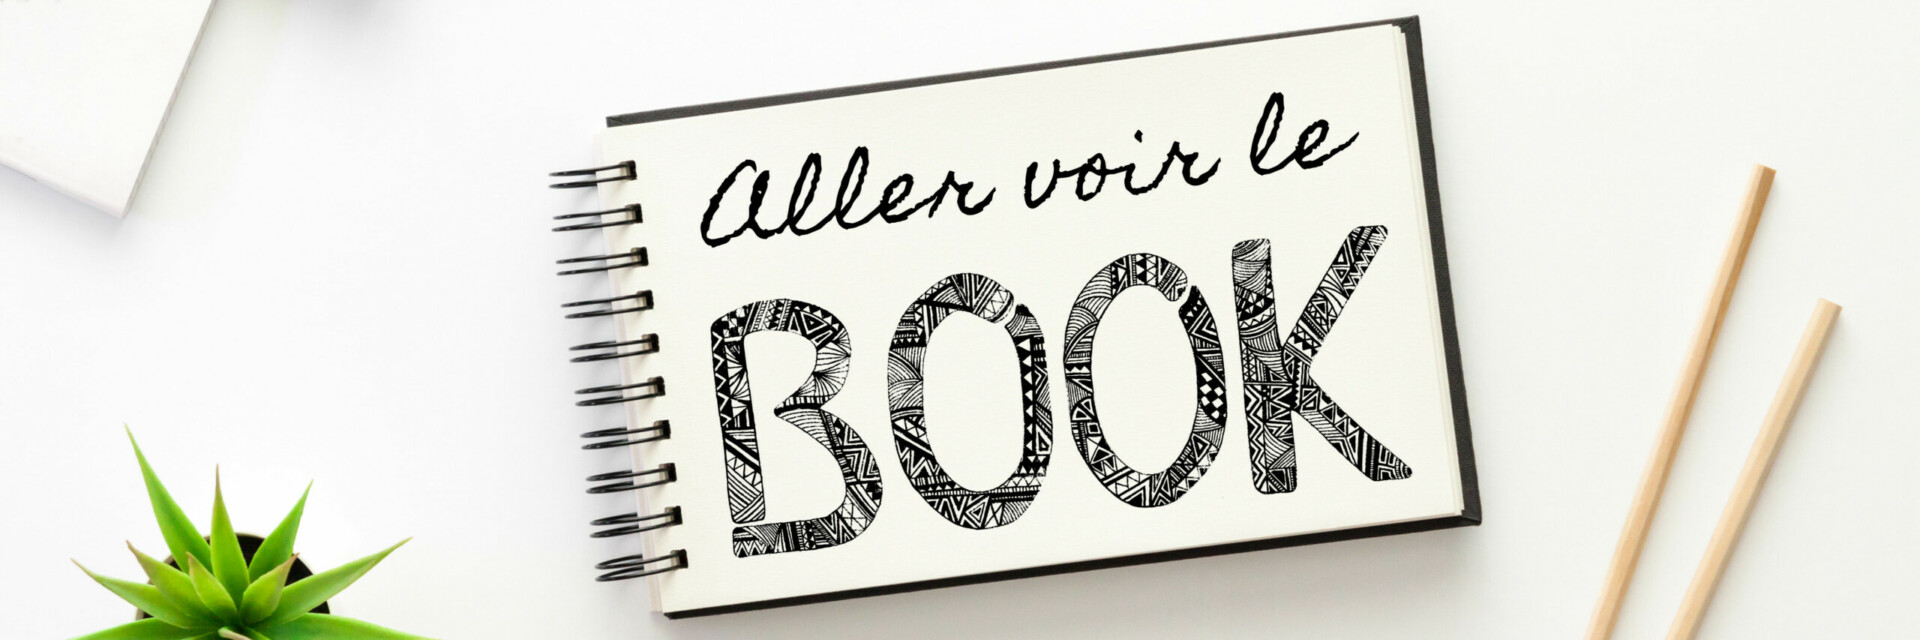 Aller voir le
BOOK